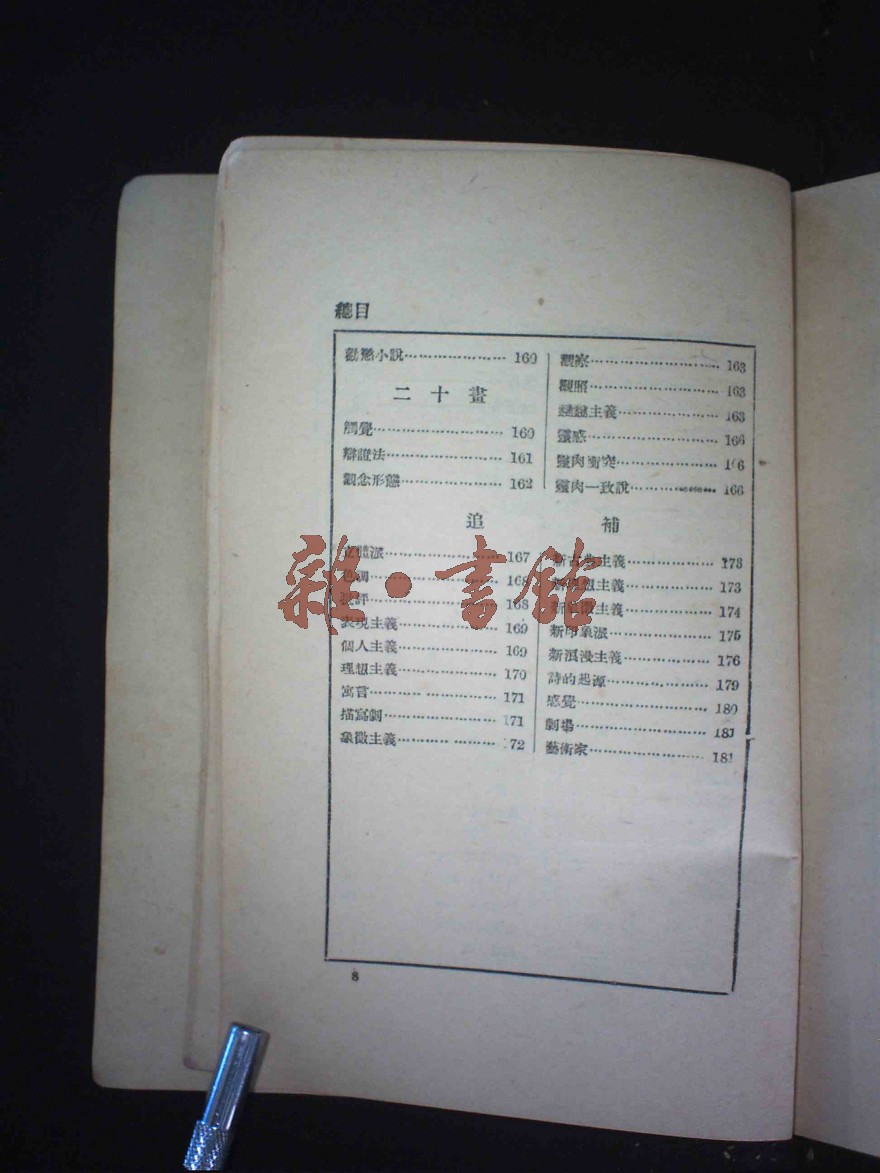 總目
勸懲小說 160
二十畫
觸覺 160
辯證法 161
觀念形態 162
觀察 163
觀照 163
主義 163
靈感 166
靈肉衝突 166
靈肉一致說 166
追補
立體派 167
168
批評 168
表現主義 169
個人主義 169
理想主義 170
寓言 171
描寫劇 171
象徵主義 172
新古典主義 173
新理想主義 173
新象徵主義 174
新印象派 175
新浪漫主義 176
詩的起源 179
感覺 180
劇場 181
藝術家 181
8
雜·書館